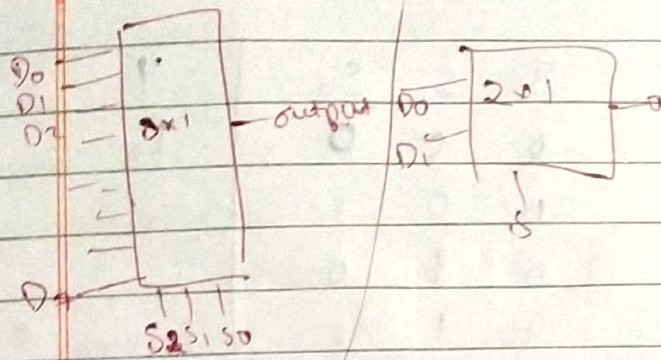 D0
D1
D2
8x1
output
D
S2 S1 S0
D0
D1
2x1
S